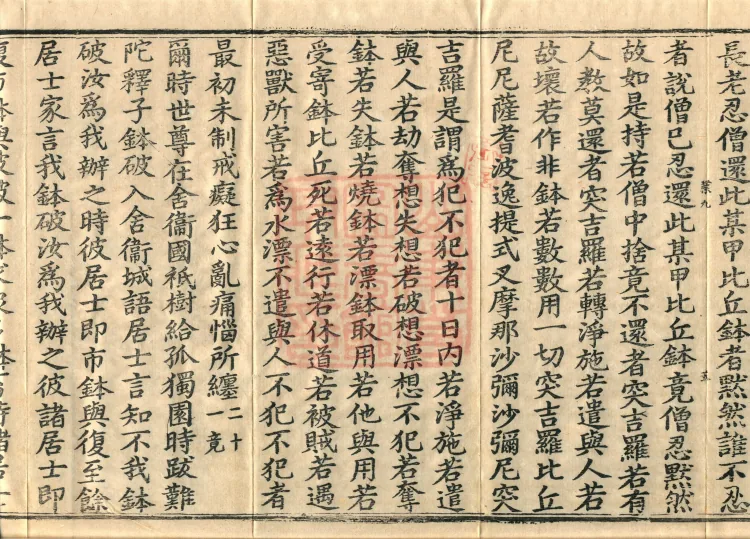 長老忍僧還此某甲比丘鉢者黙然誰不忍
者說僧已忍還此某甲比丘鉢竟僧忍黙然
葉九
五
故如是持若僧中捨竟不還者突吉羅若有
人教莫還者突吉羅若轉淨施若遣與人若
故壞若作非鉢若數數用一切突吉羅比丘
尼尼薩耆波逸提式叉摩那沙彌沙彌尼突
吉羅是謂為犯不犯者十日內若淨施若遣
與人若劫奪想失想若破想漂想不犯若奪
鉢若失鉢若燒鉢若漂鉢取用若他與用若
受寄鉢比丘死若遠行若休道若被賊若遇
惡獸所害若為水漂不遣與人不犯不犯者
最初未制戒癡狂心亂痛惱所纏二十一竟
爾時世尊在舍衞國祇樹給孤獨園時跋難
陀釋子鉢破入舍衞城語居士言知不我鉢
破汝為我辦之時彼居士即市鉢與復至餘
居士家言我鉢破汝為我辦之彼諸居士即